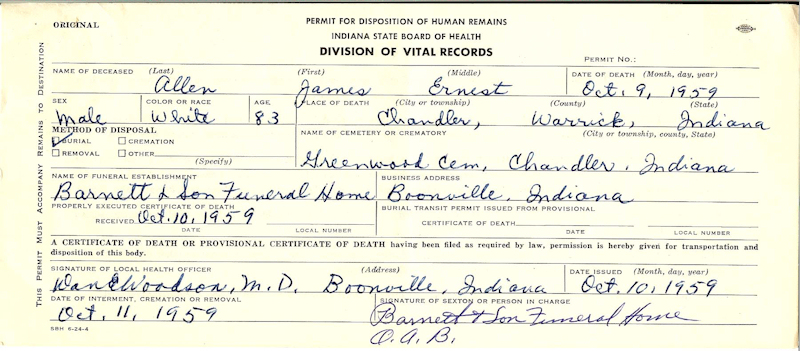 ORIGINAL
PERMIT FOR DISPOSITION OF HUMAN REMAINS
INDIANA STATE BOARD OF HEALTH
DIVISION OF VITAL RECORDS
PERMIT NO.:
THIS PERMIT MUST ACCOMPANY REMAINS TO DESTINATION
NAME OF DECEASED (Last) (First) (Middle) DATE OF DEATH (Month, day, year)
Allen James Ernest Oct. 9, 1959
SEX COLOR OR RACE AGE PLACE OF DEATH (City or township) (County) (State)
Male White 83 Chandler, Warrick, Indiana
METHOD OF DISPOSAL NAME OF CEMETERY OR CREMATORY (City or township, county, State)
BURIAL CREMATION
REMOVAL OTHER
(Specify)
Greenwood Cem, Chandler, Indiana
NAME OF FUNERAL ESTABLISHMENT BUSINESS ADDRESS
Barnett & Son Funeral Home Boonville, Indiana
PROPERLY EXECUTED CERTIFICATE OF DEATH BURIAL TRANSIT PERMIT ISSUED FROM PROVISIONAL
RECEIVED Oct. 10, 1959 CERTIFICATE OF DEATH
DATE LOCAL NUMBER DATE LOCAL NUMBER
A CERTIFICATE OF DEATH OR PROVISIONAL CERTIFICATE OF DEATH having been filed as required by law, permission is hereby given for transportation and
disposition of this body.
SIGNATURE OF LOCAL HEALTH OFFICER (Address) DATE ISSUED (Month, day, year)
Dan E Woodson, M.D. Boonville, Indiana Oct. 10, 1959
DATE OF INTERMENT, CREMATION OR REMOVAL SIGNATURE OF SEXTON OR PERSON IN CHARGE
Oct. 11, 1959 Barnett & Son Funeral Home
O.A.B.
SBH 6-24-4